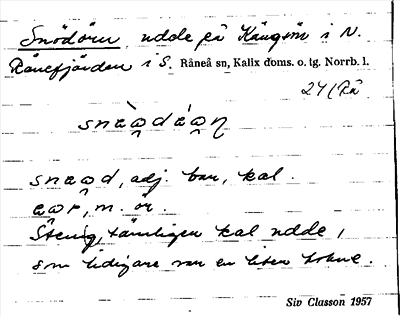 Snödören udde på Långön i N.
Rånefjärden i S. Råneå sn, Kalix doms. o. tg. Norrb. l.
24/Rå
adj. bar, kal.
m. ör.
Stenig, tämligen kal udde,
som tidigare var en liten holme.
Siv Classon 1957